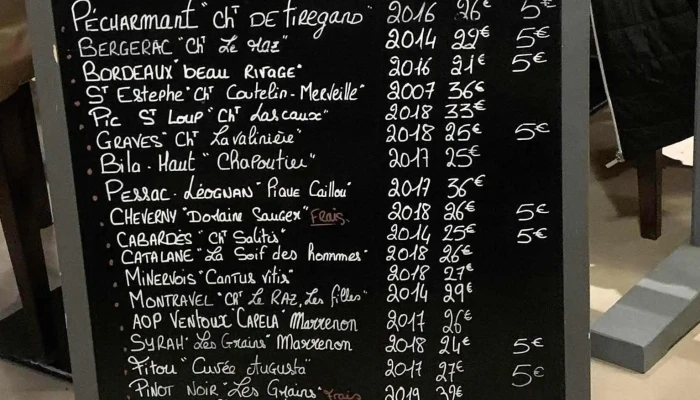 PÉCHARMANT "Cht DE TIREGAND" 2016 26€ 5€
BERGERAC "Cht Le Raz" 2014 22€ 5€
BORDEAUX "beau RIVAGE" 2016 21€ 5€
ST Estephe "Cht Coutelin-Merveille" 2007 36€
Pic ST Loup "Cht Lascaux" 2018 33€
GRAVES "Cht Lavalinière" 2018 25€ 5€
Bila-Haut "Chapoutier" 2017 25€
PESSAC-LÉOGNAN "Pique Caillou" 2017 36€
CHEVERNY "Domaine Sauger" Frais. 2018 26€ 5€
CABARDÈS "Cht Salitis" 2014 25€ 5€
CATALANE "La Soif des Hommes" 2018 26€
MINERVOIS "CANTUS VITIS" 2018 27€
MONTRAVEL "Cht Le RAZ, Les filles" 2014 29€
AOP VENTOUX "CAPELA" Marrenon 2017 26€
SYRAH "Les Grains" Marrenon 2018 24€ 5€
Fitou "Cuvée Augusta" 2017 27€ 5€
PINOT NOIR "Les Grains" Frais 2019